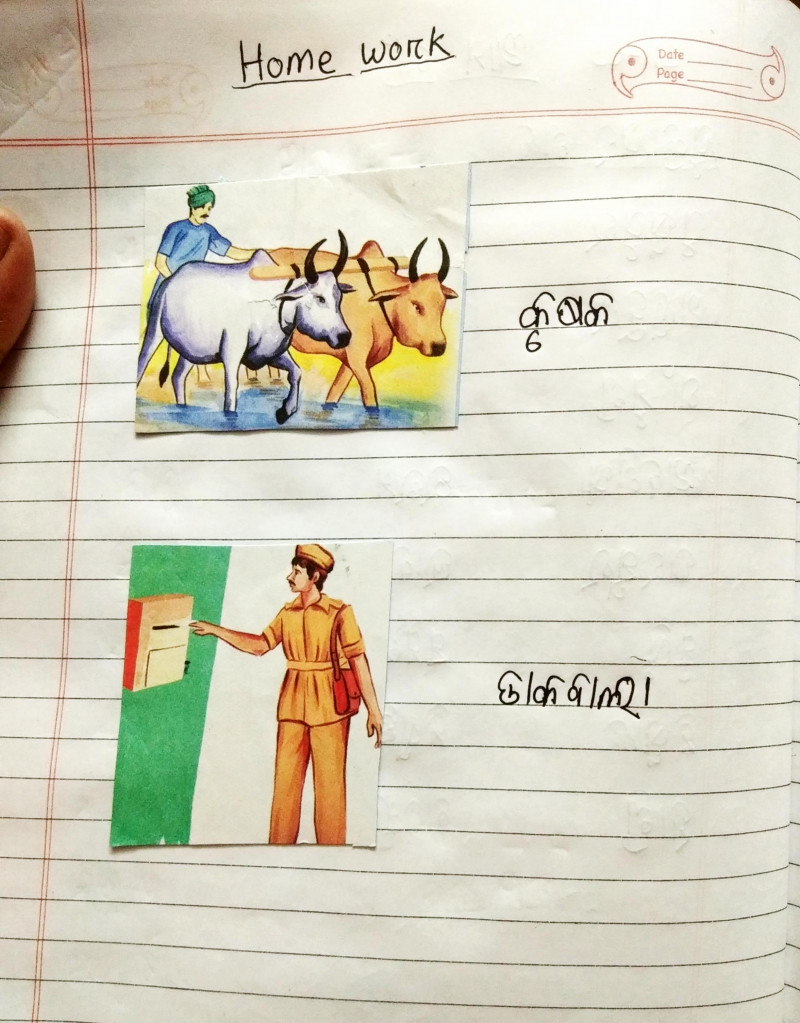 Home work
Date
Page
କୃଷକ
ଡାକବାଲା